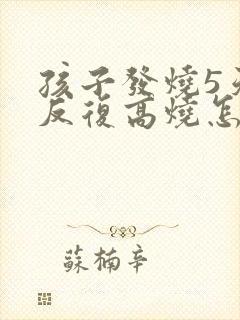 孩子發燒5
反復高燒怎
蘇楠辛